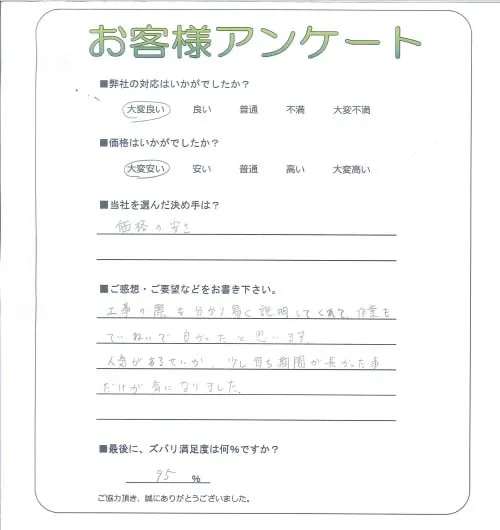 お客様アンケート
■弊社の対応はいかがでしたか？
大変良い 良い 普通 不満 大変不満
■価格はいかがでしたか？
大変安い 安い 普通 高い 大変高い
■当社を選んだ決め手は？
価格の安さ
■ご感想・ご要望などをお書き下さい。
工事の際も分かり易く説明してくれて、作業も
ていねいで良かったと思います。
人気があるせいか、少し待ち期間が長かった事
だけが気になりました。
■最後に、ズバリ満足度は何%ですか？
95 %
ご協力頂き、誠にありがとうございました。